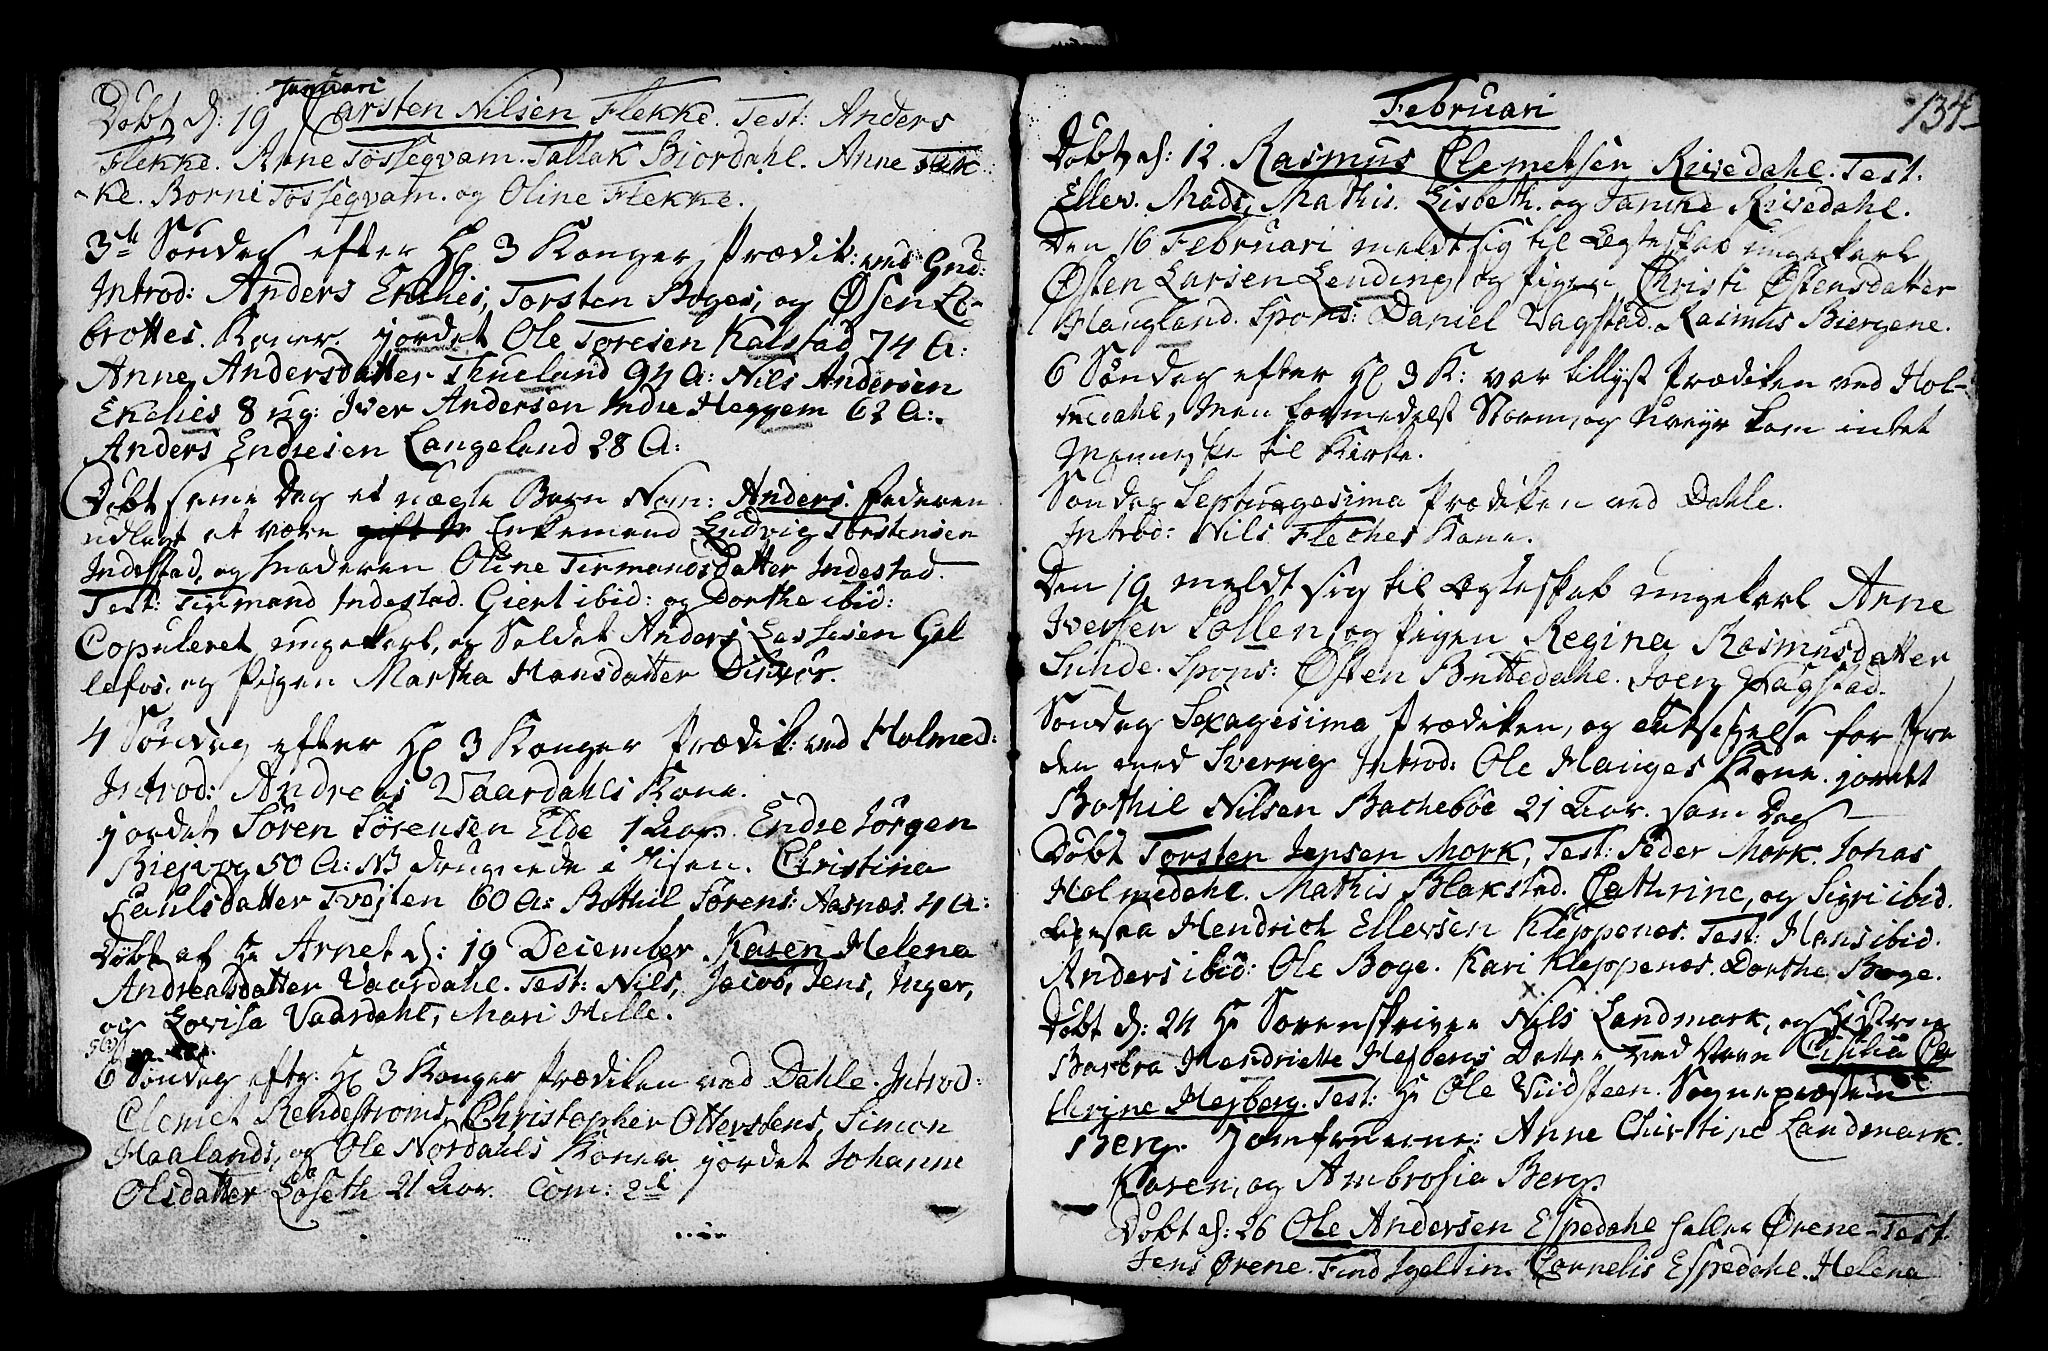 Januari
Døbt d: 19 Carsten Nilsen Flekke. Test: Anders
Flekke. Arne Tøssegvam. Tallak Biordahl. Anne Flek-
ke. Borni Tøssegvam. og Oline Flekke.
3de Søndag efter H 3 Konger Prædik: ved Gud:
Introd: Anders Ekelies, Torsten Boges, og Øsen Lo-
brottes. Koner. jordet Ole Toresen Kalstad 74 A:
Anne Andersdatter Thueland 94 A: Nils Andersen
Ekelies 8 ug: Iver Andersen Indre Heggem 62 A:
Anders Endresen Langeland 28 A:
Døbt samme Dag et uægte Barn Navn: Anders. Faderen
udlagt at være Enkemand Ludvig Torstensen
Indestad, og Moderen Oline Tormondsdatter Indestad.
Test: Tormand Indestad. Giert ibid: og Dorthe ibid:
Copuleret ungekarl, og Soldat Anders Lassesen Gel
lefos. og Pigen Martha Hansdatter
4 Søndag efter H 3 Konger Prædik: ved Holmed:
Introd: Andreas Vaardahls Kone.
jordet Søren Sørensen Elde 1 Aar. Endre Jørgen
50 A: NB druknede i Elven. Christina
Paulsdatter Tveiten 60 A: Bothil Sørens: Aasnæs 4 A:
Døbt af Hr Arnet d: 19 December Karen Helena
Andreasdatter Vaardahl. Test: Nils, Jacob, Jens, Inger,
og Lovisa Vaardahl, Mari Hille.
6 Søndag eftr: H 3 Konger Prædiken ved Dahle. Introd:
Clemet Rendestroms, Christopher Otterstens, Simon
Haalands, og Ole Nordahls Koner jordet Johanne
Olsdatter Løseth 21 Aar. Com: 2
134
Februari
Døbt d: 12. Rasmus Clemetsen Rivedahl. Test:
Eller. Mads, Mathis. Lisbeth. og Janike Rivedahl.
Den 16 Februari meldt sig til Egteskab ungekarl
Østen Larsen Lending og pigen Christi Østensdatter
Haugland. Spons: Daniel Vagstad. Rasmus Biergene.
6 Søndag efter H 3 K: var tillyst Prædiken ved Hol-
medahl, Men formedelst Storm, og Uveyr kom intet
Menneske til Kirke.
Søndag Septuagesima Prædiken ved Dahle.
Introd: Nils Flechес Kone.
Den 19 meldt sig til Egteskab ungekarl Arne
Iversen Sollen, og Pigen Regina Rasmusdatter
Sunde. Spons: Østen Buttedahl. Joen Vagstad.
Søndag Sexagesima Prædiken, og taksigelse for Fre
den med Sverrig Introd: Ole Hauges Kone. jordet
Bothil Nilsen Bacheböe 21 Aar. samme Dag
Døbt Torsten Jensen Mork, Test: Peder Mork. Johas
Holmedahl. Mathis Blakstad. Cathrine, og Sigri ibid.
Ligesaa Hendrich Ellevsen Kleppenes. Test: Hans ibid.
Anders ibid: Ole Boge. Kari Kleppenæs. Dorthe Boge.
Døbt d: 24 Hr Sorenskriver Nils Landmark, og Hustrue
Barbra Hendriette Hejbergs Datter ved Navn Cisilia Ca
thrine Hejberg. Test: Hr Ole Vindsteen. Sognepræsten
Berg. Jomfruerne: Anne Christine Landmark.
Karen, og Ambrosia Berg.
Døbt d: 26 Ole Andersen Espedahl heller Ørene. Test:
Jens Ørene. Find Cornelis Espedahl. Helena